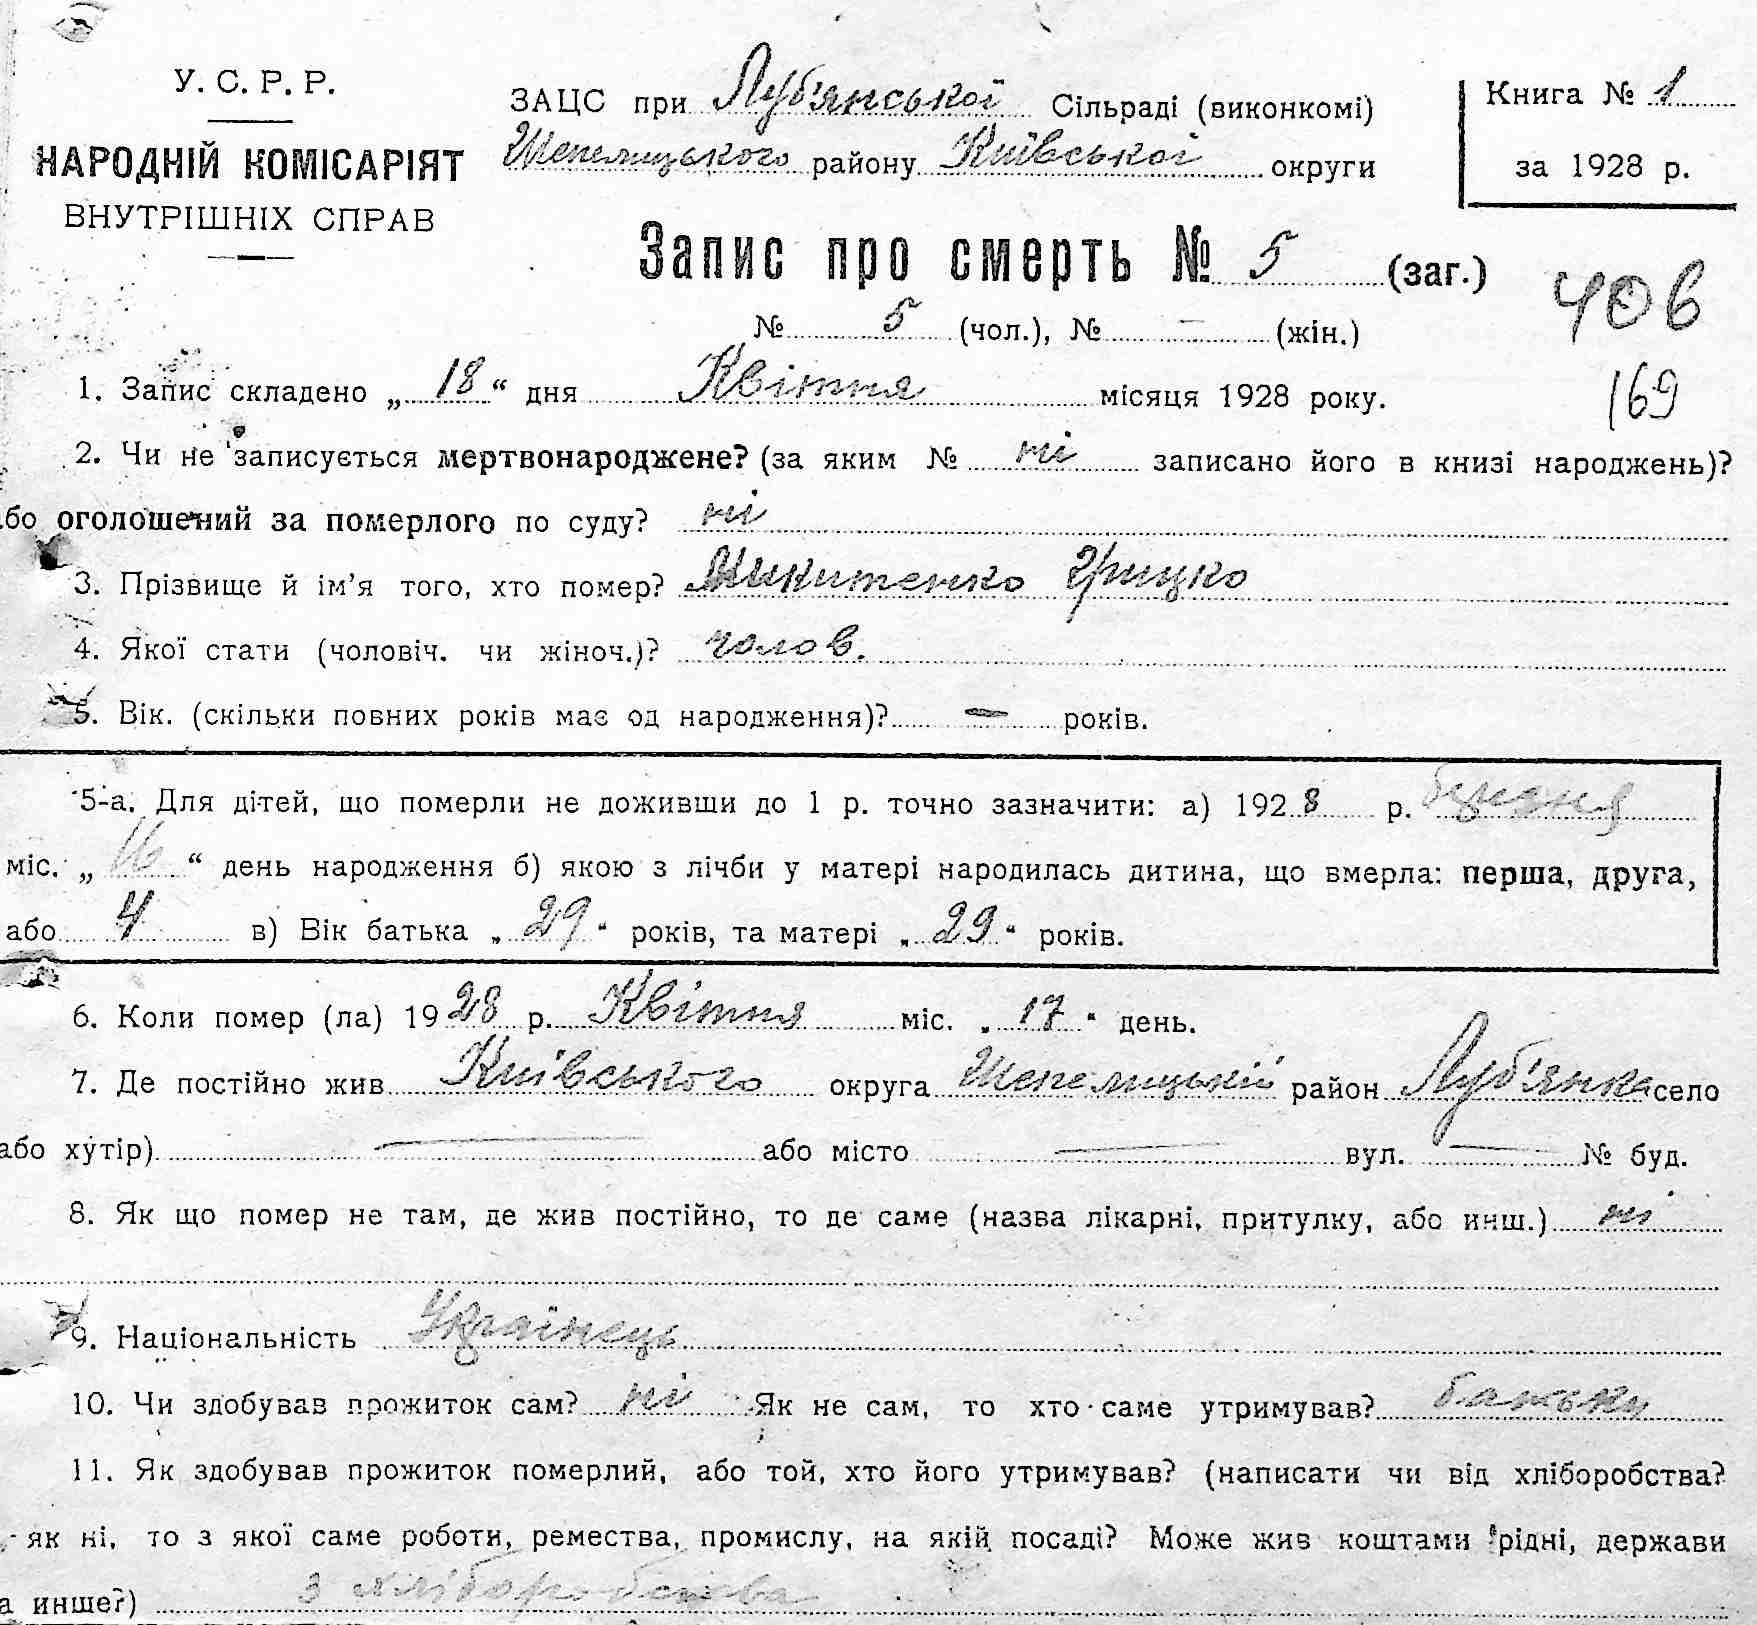 У. С. Р. Р.
НАРОДНІЙ КОМІСАРІЯТ
ВНУТРІШНІХ СПРАВ
ЗАЦС при Луб'янської Сільраді (виконкомі)
Шепелицького району Київської округи
Книга № 1
за 1928 р.
Запис про смерть № 5 (заг.)
№ 5 (чол.), № – (жін.)
406
169
1. Запис складено „18“ дня Квітня місяця 1928 року.
2. Чи не записується мертвонароджене? (за яким № ні записано його в книзі народжень)?
або оголошений за померлого по суду? ні
3. Прізвище й ім’я того, хто помер? Микитенко Грицко
4. Якої стати (чоловіч. чи жіноч.)? чолов.
5. Вік. (скільки повних років має од народження)? — років.
5-а. Для дітей, що померли не доживши до 1 р. точно зазначити: а) 1928 р.
міс. „16“ день народження б) якою з лічби у матері народилась дитина, що вмерла: перша, друга,
або 4 в) Вік батька „29“ років, та матері „29“ років.
6. Коли помер (ла) 1928 р. Квітня міс. „17“ день.
7. Де постійно жив Київського округа Шепелицькій район Луб'янка село
або хутір) — або місто — вул. — № буд.
8. Як що помер не там, де жив постійно, то де саме (назва лікарні, притулку, або инш.) ні
9. Національність Українець
10. Чи здобував прожиток сам? ні Як не сам, то хто саме утримував? батьки
11. Як здобував прожиток померлий, або той, хто його утримував? (написати чи від хліборобства?
як ні, то з якої саме роботи, ремества, промислу, на якій посаді? Може жив коштами рідні, держави
а инше?) З хліборобства